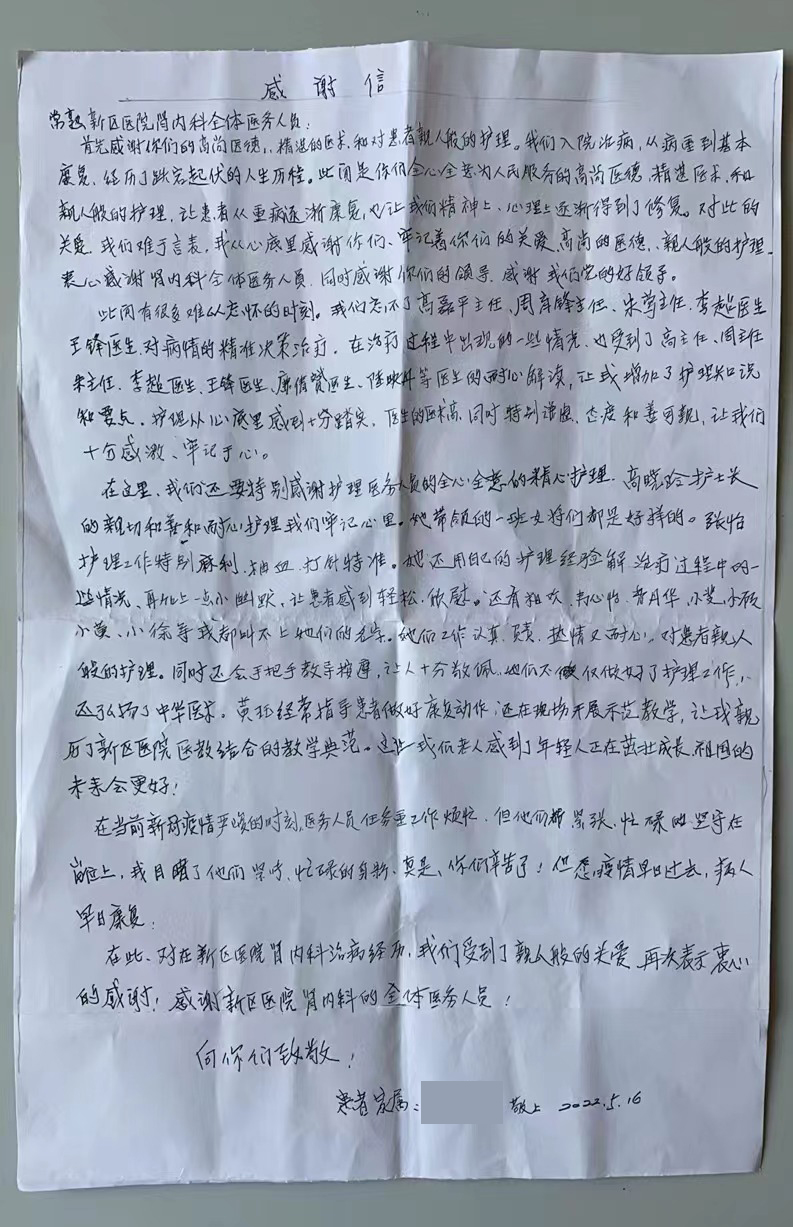 感谢信
常熟新区医院肾内科全体医务人员:
首先感谢你们的高尚医德,精湛的医术,和对患者亲人般的护理。我们入院治病,从病重到基本
康复,经历了跌宕起伏的人生历程。此间是你们全心全意为人民服务的高尚医德,精湛医术,和
亲人般的护理,让患者从重病逐渐康复,也让我们精神上、心理上逐渐得到了修复。对此的
关爱,我们难于言表,我从心底里感谢你们、牢记着你们的关爱、高尚的医德、亲人般的护理。
衷心感谢肾内科全体医务人员,同时感谢你们的领导,感谢我们党的好领导。
此间有很多难以忘怀的时刻。我们忘不了高磊平主任、周育锋主任、朱莺主任、李超医生
王锋医生,对病情的精准决策治疗,在治疗过程中出现的一些情况,也受到了高主任、周主任
朱主任、李超医生、王锋医生、廉倩赟医生、陆映科等医生的耐心解读,让我增加了护理知识
和要点,护理从心底里感到十分踏实,医生的医术高,同时特别谦虚,态度和善可亲,让我们
十分感激、牢记于心。
在这里、我们还要特别感谢护理医务人员的全心全意的精心护理,高晓玲护士长
的亲切和善和耐心护理我们牢记心里。她带领的一班女将们都是好样的。张怡
护理工作特别麻利,抽血,打针特准。她还用自己的护理经验解治疗过程中的一
些情况、再加上一点小幽默,让患者感到轻松、欣慰。还有 心怡、 月华、小 、小
小黄、小徐等我都叫不上她们的名字。她们工作认真、负责、热情又耐心,对患者亲人
般的护理。同时还会手把手教导按摩,让人十分敬佩,她们不仅做好了护理工作,
还弘扬了中华医术。黄珏经常指导患者做好康复动作,还在现场开展示范教学,让我亲
历了新区医院医教结合的教学典范。这些我们老人感到了年轻人正在茁壮成长,祖国的
未来会更好!
在当前新冠疫情严峻的时刻,医务人员任务重工作烦忙,但他们都紧张、忙碌的坚守在
岗位上,我目睹了他们紧张、忙碌的身影,真是、你们辛苦了!但愿疫情早日过去,病人
早日康复。
在此、对在新区医院肾内科治病经历,我们受到了亲人般的关爱,再次表示衷心
的感谢!感谢新区医院肾内科的全体医务人员!
向你们致敬!
患者家属: 敬上 2022.5.16